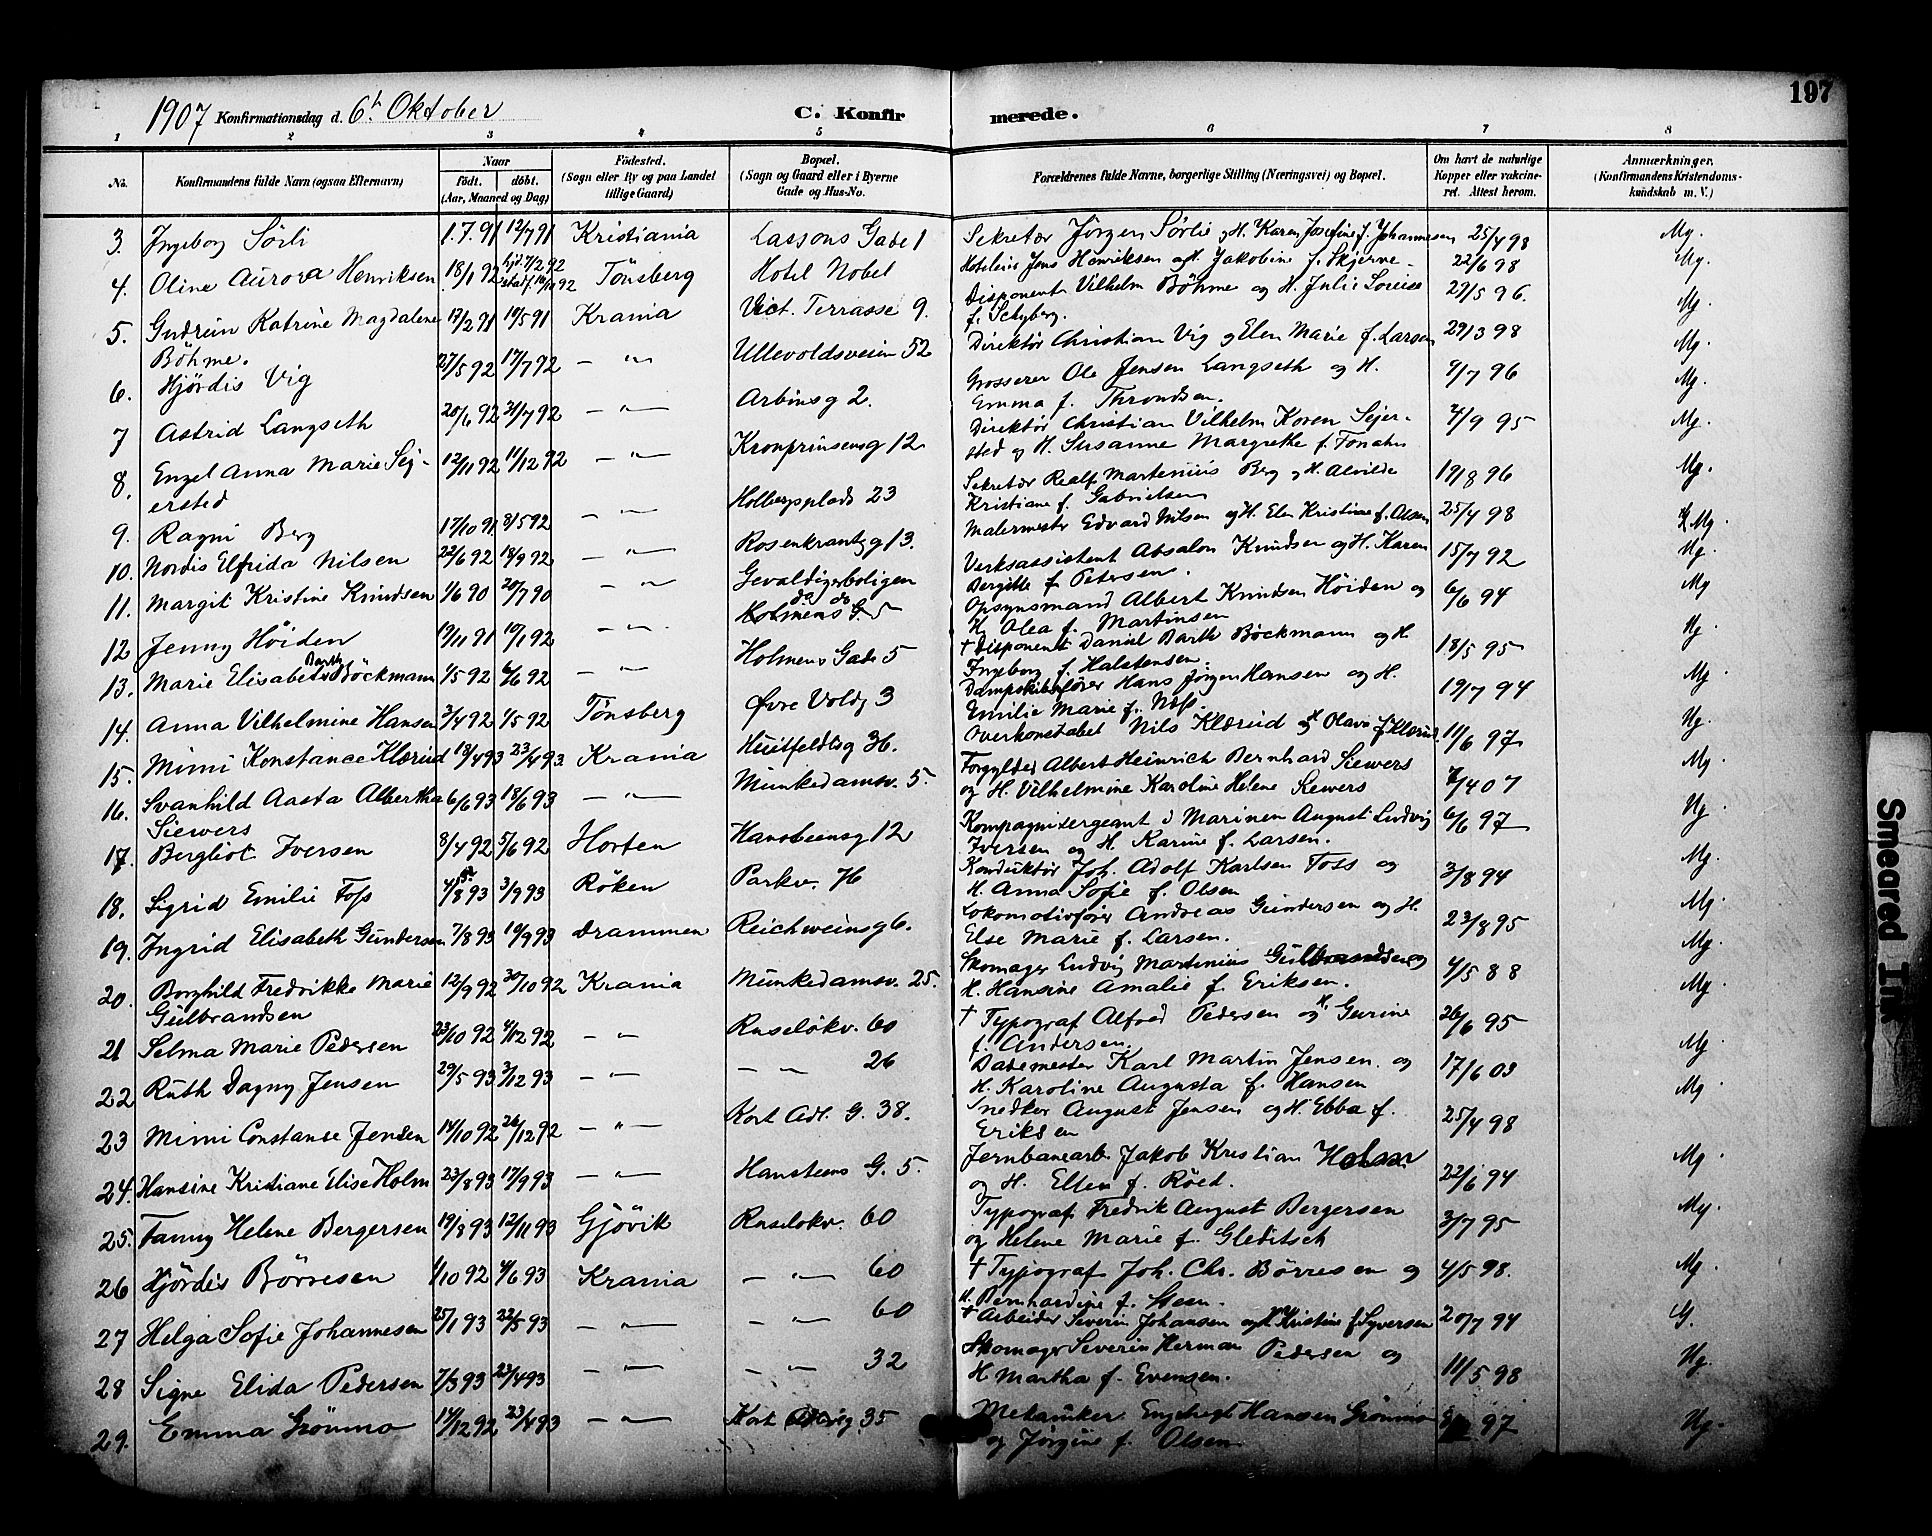 197
1907 Konfirmationsdag d. 6t Oktober C. Konfirmerede.
1 2 3 4 5 6 7 8
No. Konfirmandens fulde Navn (ogsaa Efternavn) Naar født. døbt. (Aar, Maaned og Dag) Fødested. (Sogn eller By og paa Landet tillige Gaard) Bopæl. (Sogn og Gaard eller i Byerne Gade og Hus-No. Forældrenes fulde Navne, borgerlige Stilling (Næringsvei) og Bopæl. Om havt de naturlige Kopper eller vaccineret. Attest herom. Anmærkninger, (Konfirmandens Kristendomskundskab m. V.)
3. Ingeborg Sörli 1.7.91 12/7 91 Kristiania Lassons Gade 1 Sekretær Jörgen Sörlie og H. Karen Josefine f. Johannesen 25/4 98 Mg.
4. Oline Aurora Henriksen 18/1 92 hjd. 7/2 92 stadf. 92 Tönsberg Hotel Nobel Hoteleier Jens Henriksen og H. Jakobine f. Skjerve 22/6 98 Mg.
5. Gudrun Katrine Magdalene Böhme. 17/2 91 19/5 91 Krania Vict. Terrasse 9. Disponent Vilhelm Böhme og H. Julie Lovise f. Schyberg. 29/5 96. Mg
6. Hjördis Vig 27/5 92 17/7 92 — " — Ullevoldsveien 52 Direktör Christian Vig og Elen Marie f. Larsen 29/3 98 Mg.
7 Astrid Langseth 20/6 92 31/7 92 — " — Arbinsg 2. Grosserer Ole Jensen Langseth og H. Emma f. Throndsen. 9/7 96 Mg.
8. Engel Anna Marie Sejersted 12/11 92 11/12 92 — " — Kronprinsensg 12 Direktör Christian Vilhelm Koren Sejersted og H. Susanne Margrethe f. Fonahn 4/9 95 Mg.
9. Ragni Berg 17/10 91 8/5 92 — " — Holbergsplads 23 Sekretær Realf Martenius Berg og H. Alvilde Kristiane f. Gabrielsen 19/8 96 Mg.
10. Nordis Elfrida Nilsen 22/6 92 18/9 92 — " — Rosenkrantzg 13. Malermester Edvard Nilsen og H. Elen Kristine f. Olsen 25/4 98 Mg.
11. Margit Kristine Knudsen 1/6 90 20/7 90 — " — Gevaldigerboligen Verksassistent Absalon Knudsen og H. Karen Bergitte f. Petersen. 15/7 92 Mg.
12 Jenny Höiden 19/11 91 10/1 92 — " — do do Holmens G. 5 Opsynsmand Albert Knudsen Höiden og H. Olea f. Martinsen 6/6 94 Mg
13. Marie Elisabeth Barth Böckmann 1/5 92 6/6 92 — " — Holmens Gade 5 † Disponent Daniel Barth Böckmann og H. Ingeborg f. Halstensen. 18/5 95 Mg.
14. Anna Vilhelmine Hansen 3/4 92 1/5 92 Tönsberg Øvre Voldg 3 Dampskibsfører Hans Jörgen Hansen og H. Emilie Marie f. Næss. 19/7 94 Mg
15. Mimi Konstance Klærud 13/4 93 23/4 93. Krania Huitfeldtsg 36. Overkonstabel Nils Klærud og H Olava f Klærud. 11/6 97 Mg.
16. Svanhild Aasta Albertha Siewers 6/6 93 18/6 93 — " — Munkedamsv. 5. Forgylder Albert Heinrich Bernhard Siewers og H. Vilhelmine Karoline Helene Siewers 7/4 07 Mg.
17. Bergliot Iversen 8/4 92 5/6 92 Horten Hansteensg 12 Kompagnisergeant i Marinen August Ludvig Iversen og H. Karine f. Larsen. 6/6 97 Mg
18. Sigrid Emilie Foss 4/8 93 3/9 93 Röken Parkv. 76 Konduktör Joh. Adolf Karlsen Foss og H. Anna Sofie f. Olsen 3/8 94 Mg.
19. Ingrid Elisabeth Gundersen 7/8 93 10/9 93 Drammen Reichweinsg 6. Lokomotivförer Andreas Gundersen og H. Else Marie f. Larsen. 23/8 95 Mg.
20. Borghild Fredrikke Marie Gulbrandsen 12/9 92 30/10 92 Krania Munkedamsv. 25. Skomager Ludvig Martinius Gulbrandsen og H. Hansine Amalie f. Eriksen. 4/5 88 Mg.
21 Selma Marie Pedersen 23/10 92 4/12 92 — " — Ruselökv. 60 † Typograf Alfred Pedersen og H. Gurine f. Andersen. 26/6 95 Mg.
22 Ruth Dagny Jensen 29/5 93 3/12 93 — " — — " — 26 Bademester Karl Martin Jensen og H. Karoline Augusta f. Hansen 17/6 03 Mg.
23 Mimi Constanse Jensen 14/10 92 26/12 92 — " — Kort Adl. G. 38. Snedker August Jensen og H. Ebba f. Eriksen 25/4 98 Mg
24. Hansine Kristiane Elise Holm 23/8 93 17/9 93 — " — Hansteens G. 5. Jernbanearb. Jakob Kristian Holm og H. Ellen f. Röed. 22/6 94 Mg.
25. Fanny Helene Bergersen 19/8 93 12/11 93 Gjövik Ruselökv. 60 Typograf Fredrik August Bergersen og Helene Marie f. Gleditsch 3/7 95 Mg.
26 Hjördis Börresen 1/10 92 4/6 93 Krania — " — 60 † Typograf Joh. Chr. Börresen og H. Bernhardine f. Steen. 4/5 98. Mg.
27 Helga Sofie Johannesen 25/1 93 22/5 93 — " — — " — 60 † Arbeider Severin Johansen og H Kristine f. Syversen 20/7 94 G.
28 Signe Elida Pedersen 7/3 93 23/4 93 — " — — " — 32 Skomager Severin Herman Pedersen og H Martha f. Evensen. 11/5 98 Mg.
29. Emma Grönmo 14/12 92 23/4 93 — " — Kort 35 Mekaniker Engebregt Hansen Grönmo og Jörgine f. Olsen 97 Mg.
Smeared Ink